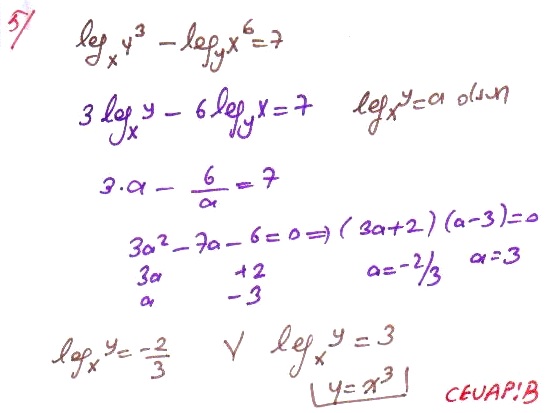 5/
log_x y³ − log_y x⁶ = 7
3 log_x y − 6 log_y x = 7   log_x y = a olsun
3·a − 6/a = 7
3a² − 7a − 6 = 0 ⇒ (3a+2)(a−3) = 0
3a   +2   a = −2/3   a = 3
a   −3
log_x y = −2/3   ∨   log_x y = 3
y = x³
CEVAP!B